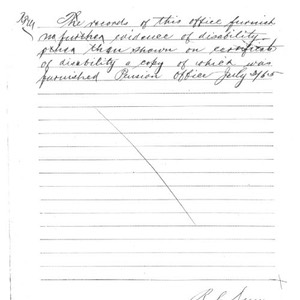 The records of this office furnish
no further evidence of disability
than shown on certificate
of disability a copy of which was
furnished Pension Office July